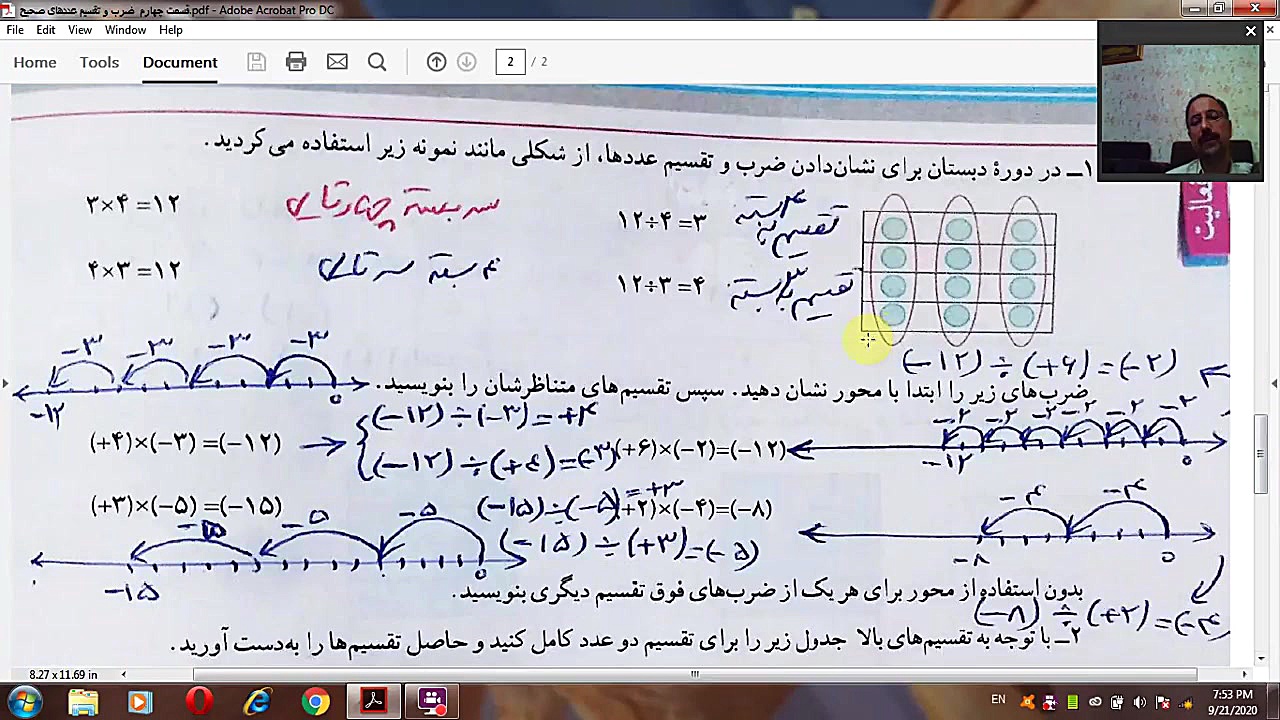 قسمت چهارم ضرب و تقسیم عددهای صحیح.pdf - Adobe Acrobat Pro DC
File Edit View Window Help
Home Tools Document 2 / 2
فعالیت
۱ــ در دورهٔ دبستان برای نشان‌دادن ضرب و تقسیم عددها، از شکلی مانند نمونه زیر استفاده می‌کردید.
۳×۴ =۱۲ سه بسته چهارتایی ۱۲÷۴ =۳ تقسیم به ۴ بسته
۴×۳ =۱۲ ۴ بسته سه تایی ۱۲÷۳ =۴ تقسیم به ۳ بسته
(-۱۲) ÷ (+۶) = (-۲)
-۳ -۳ -۳ -۳
-۱۲ ۰
ضرب‌های زیر را ابتدا با محور نشان دهید. سپس تقسیم‌های متناظرشان را بنویسید.
-۲ -۲ -۲ -۲ -۲ -۲
-۱۲ ۰
(+۴)×(−۳) =(−۱۲) (-۱۲) ÷ (-۳) = +۴
(-۱۲) ÷ (+۴) = (-۳) (+۶)×(−۲)=(−۱۲)
(+۳)×(−۵) =(−۱۵) (-۱۵) ÷ (-۵) = +۳ (+۲)×(−۴)=(−۸)
(-۱۵) ÷ (+۳) = (-۵)
-۵ -۵ -۵
-۱۵ ۰
-۴ -۴
-۸ ۰
بدون استفاده از محور برای هر یک از ضرب‌های فوق تقسیم دیگری بنویسید.
(-۸) ÷ (+۲) = (-۴)
۲ــ با توجه به تقسیم‌های بالا جدول زیر را برای تقسیم دو عدد کامل کنید و حاصل تقسیم‌ها را به‌دست آورید.
8.27 x 11.69 in
EN 7:53 PM
9/21/2020